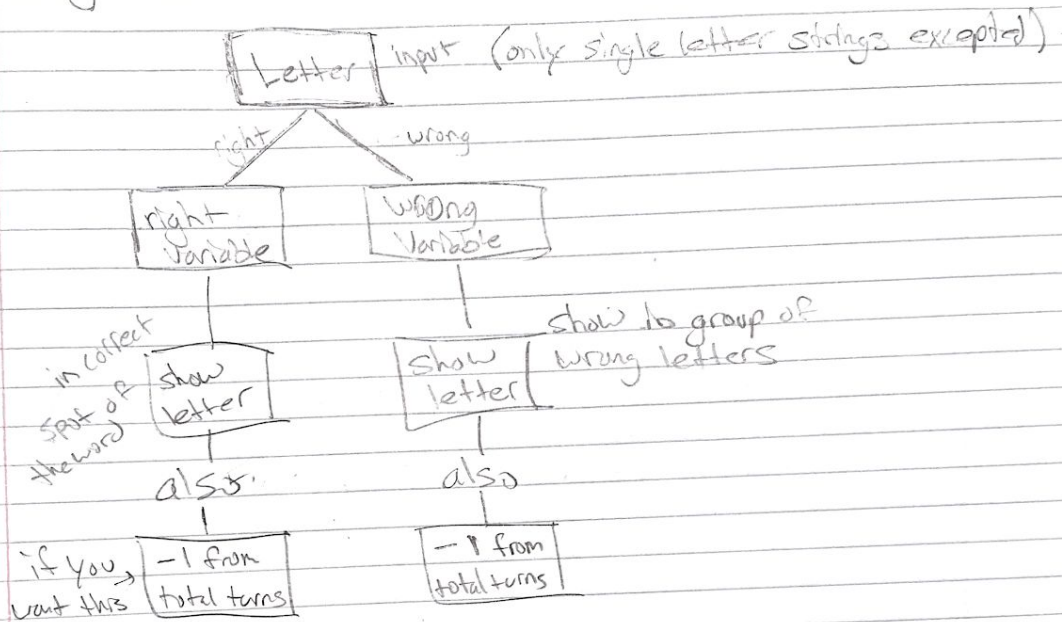 Letter
input (only single letter strings excepted)
right
wrong
right
variable
wrong
variable
in correct
spot of
the word
show
letter
show
letter
show in group of
wrong letters
also
also
if you
want this
-1 from
total turns
-1 from
total turns